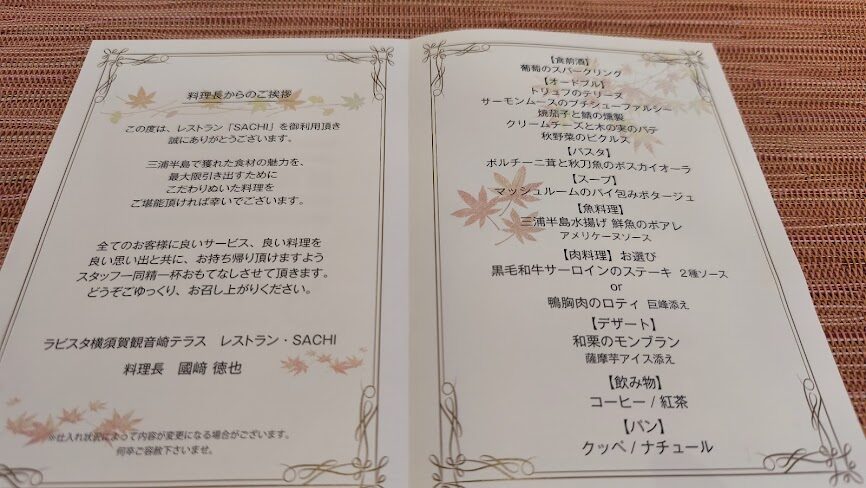 料理長からのご挨拶
この度は、レストラン「SACHI」を御利用頂き
誠にありがとうございます。
三浦半島で獲れた食材の魅力を、
最大限引き出すために
こだわりぬいた料理を
ご堪能頂ければ幸いでございます。
全てのお客様に良いサービス、良い料理を
良い思い出と共に、お持ち帰り頂けますよう
スタッフ一同精一杯おもてなしさせて頂きます。
どうぞごゆっくり、お召し上がりください。
ラビスタ横須賀観音崎テラス レストラン・SACHI
料理長 國﨑 徳也
※仕入れ状況によって内容が変更になる場合がございます。
何卒ご容赦下さいませ。
【食前酒】
葡萄のスパークリング
【オードブル】
トリュフのテリーヌ
サーモンムースのプチシューファルシー
焼茄子と鯖の燻製
クリームチーズと木の実のパテ
秋野菜のピクルス
【パスタ】
ポルチーニ茸と秋刀魚のボスカイオーラ
【スープ】
マッシュルームのパイ包みポタージュ
【魚料理】
三浦半島水揚げ 鮮魚のポアレ
アメリケーヌソース
【肉料理】お選び
黒毛和牛サーロインのステーキ 2種ソース
or
鴨胸肉のロティ 巨峰添え
【デザート】
和栗のモンブラン
薩摩芋アイス添え
【飲み物】
コーヒー / 紅茶
【パン】
クッペ / ナチュール